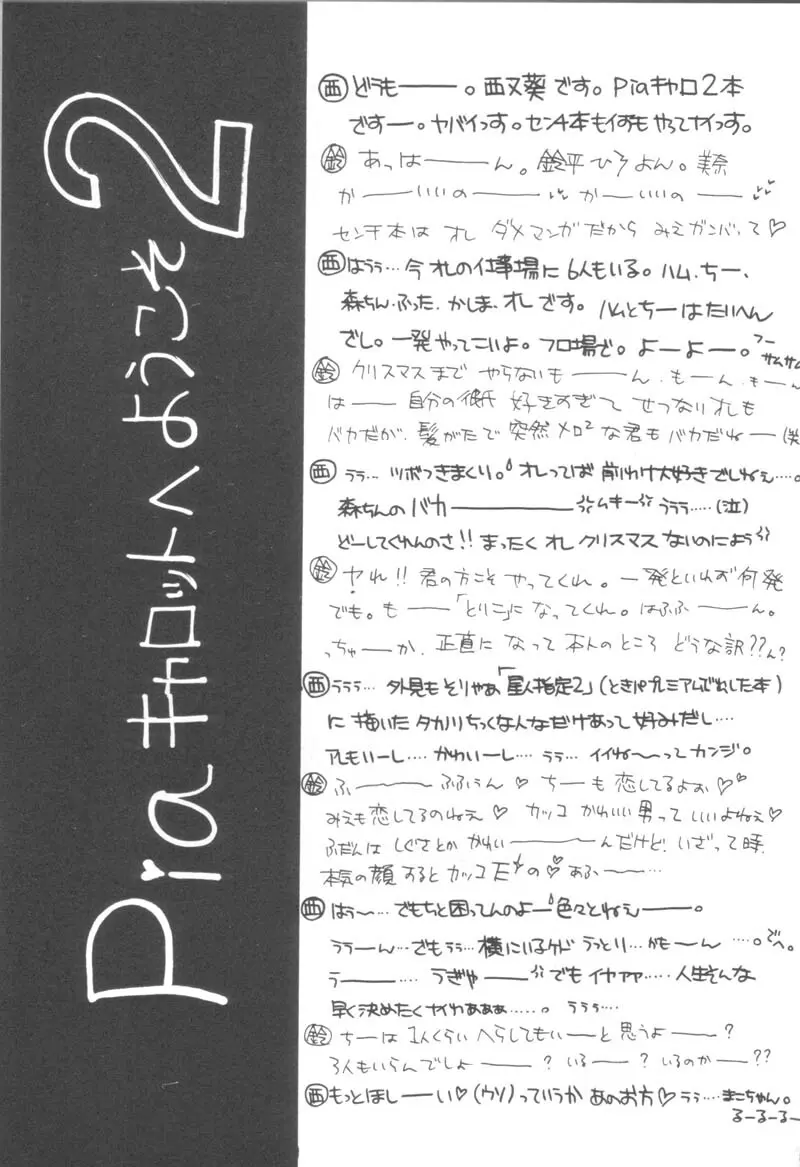 Piaキャロットへようこそ2
西 どうもー。西又葵です。Piaキャロ2本
ですー。ヤバイっす。センチ本もイすもやってナイっす。
鈴 あっはーん。鈴平ひろよん。美奈
かーいいのー かーいいのー
センチ本は オレ ダメマンガだから みえガンバって♡
西 はうぅ…今オレの仕事場に6人もいる。ハム、ちー、
森ちん、ふった、かしま、オレです。ハムとちーはたいへん
でし。一発やってこいよ。フロ場で。よーよー。フーサムサム
鈴 クリスマスまで やらないもーん。もーん。もーん
はー 自分の彼氏 好きすぎて せつなりオレも
バカだが、髪がたで突然メロ²な君もバカだねー(笑
西 うぅ…ツボつきまくり。オレってば前わけ大好きでしねぇ…。
森ちんのバカー ムキー ううう……(泣)
どーしてくれんのさ!! まったく オレ クリスマス ないのによう
鈴 ヤれ!! 君の方こそ やってくれ。一発といわず何発
でも。もー「とりこ」になってくれ。はふふーん。
っちゅーか、正直になって本人のところ どうな訳??ん?
西 ううう…外見もそりゃあ「星人指定2」(ときパプレミアムでだした本)
に描いたタカリちっくな人なだけあって好みだし…
アレもいーし…かわいーし…うぅ…イイね〜ってカンジ。
鈴 ふー ふふぅん♡ ちーも恋してるよぉ♡♡
みえも恋してるのねぇ♡ カッコかわいい男っていいよねぇ♡
ふだんは しぐさとか かわいーんだけど、いざって時、
本気の顔するとカッコEの♡あふー…
西 はぅ〜…でもちと困ってんのよー 色々とねぇー。
ううーん…でもうぅ…横にいるケド うっとり…かもーん …。でへ。
うー…うぎゃー でもイヤアァ……人生そんな
早く決めたくナイわあぁぁ……。うぅぅ…
鈴 ちーは 1人くらい へらしてもいーと思うよー?
3人もいらんでしょー? いるー? いるのかー??
西 もっとほしーい♡(ウソ)っていうか あのお方♡うぅ…まこちゃん。
るーるーるー